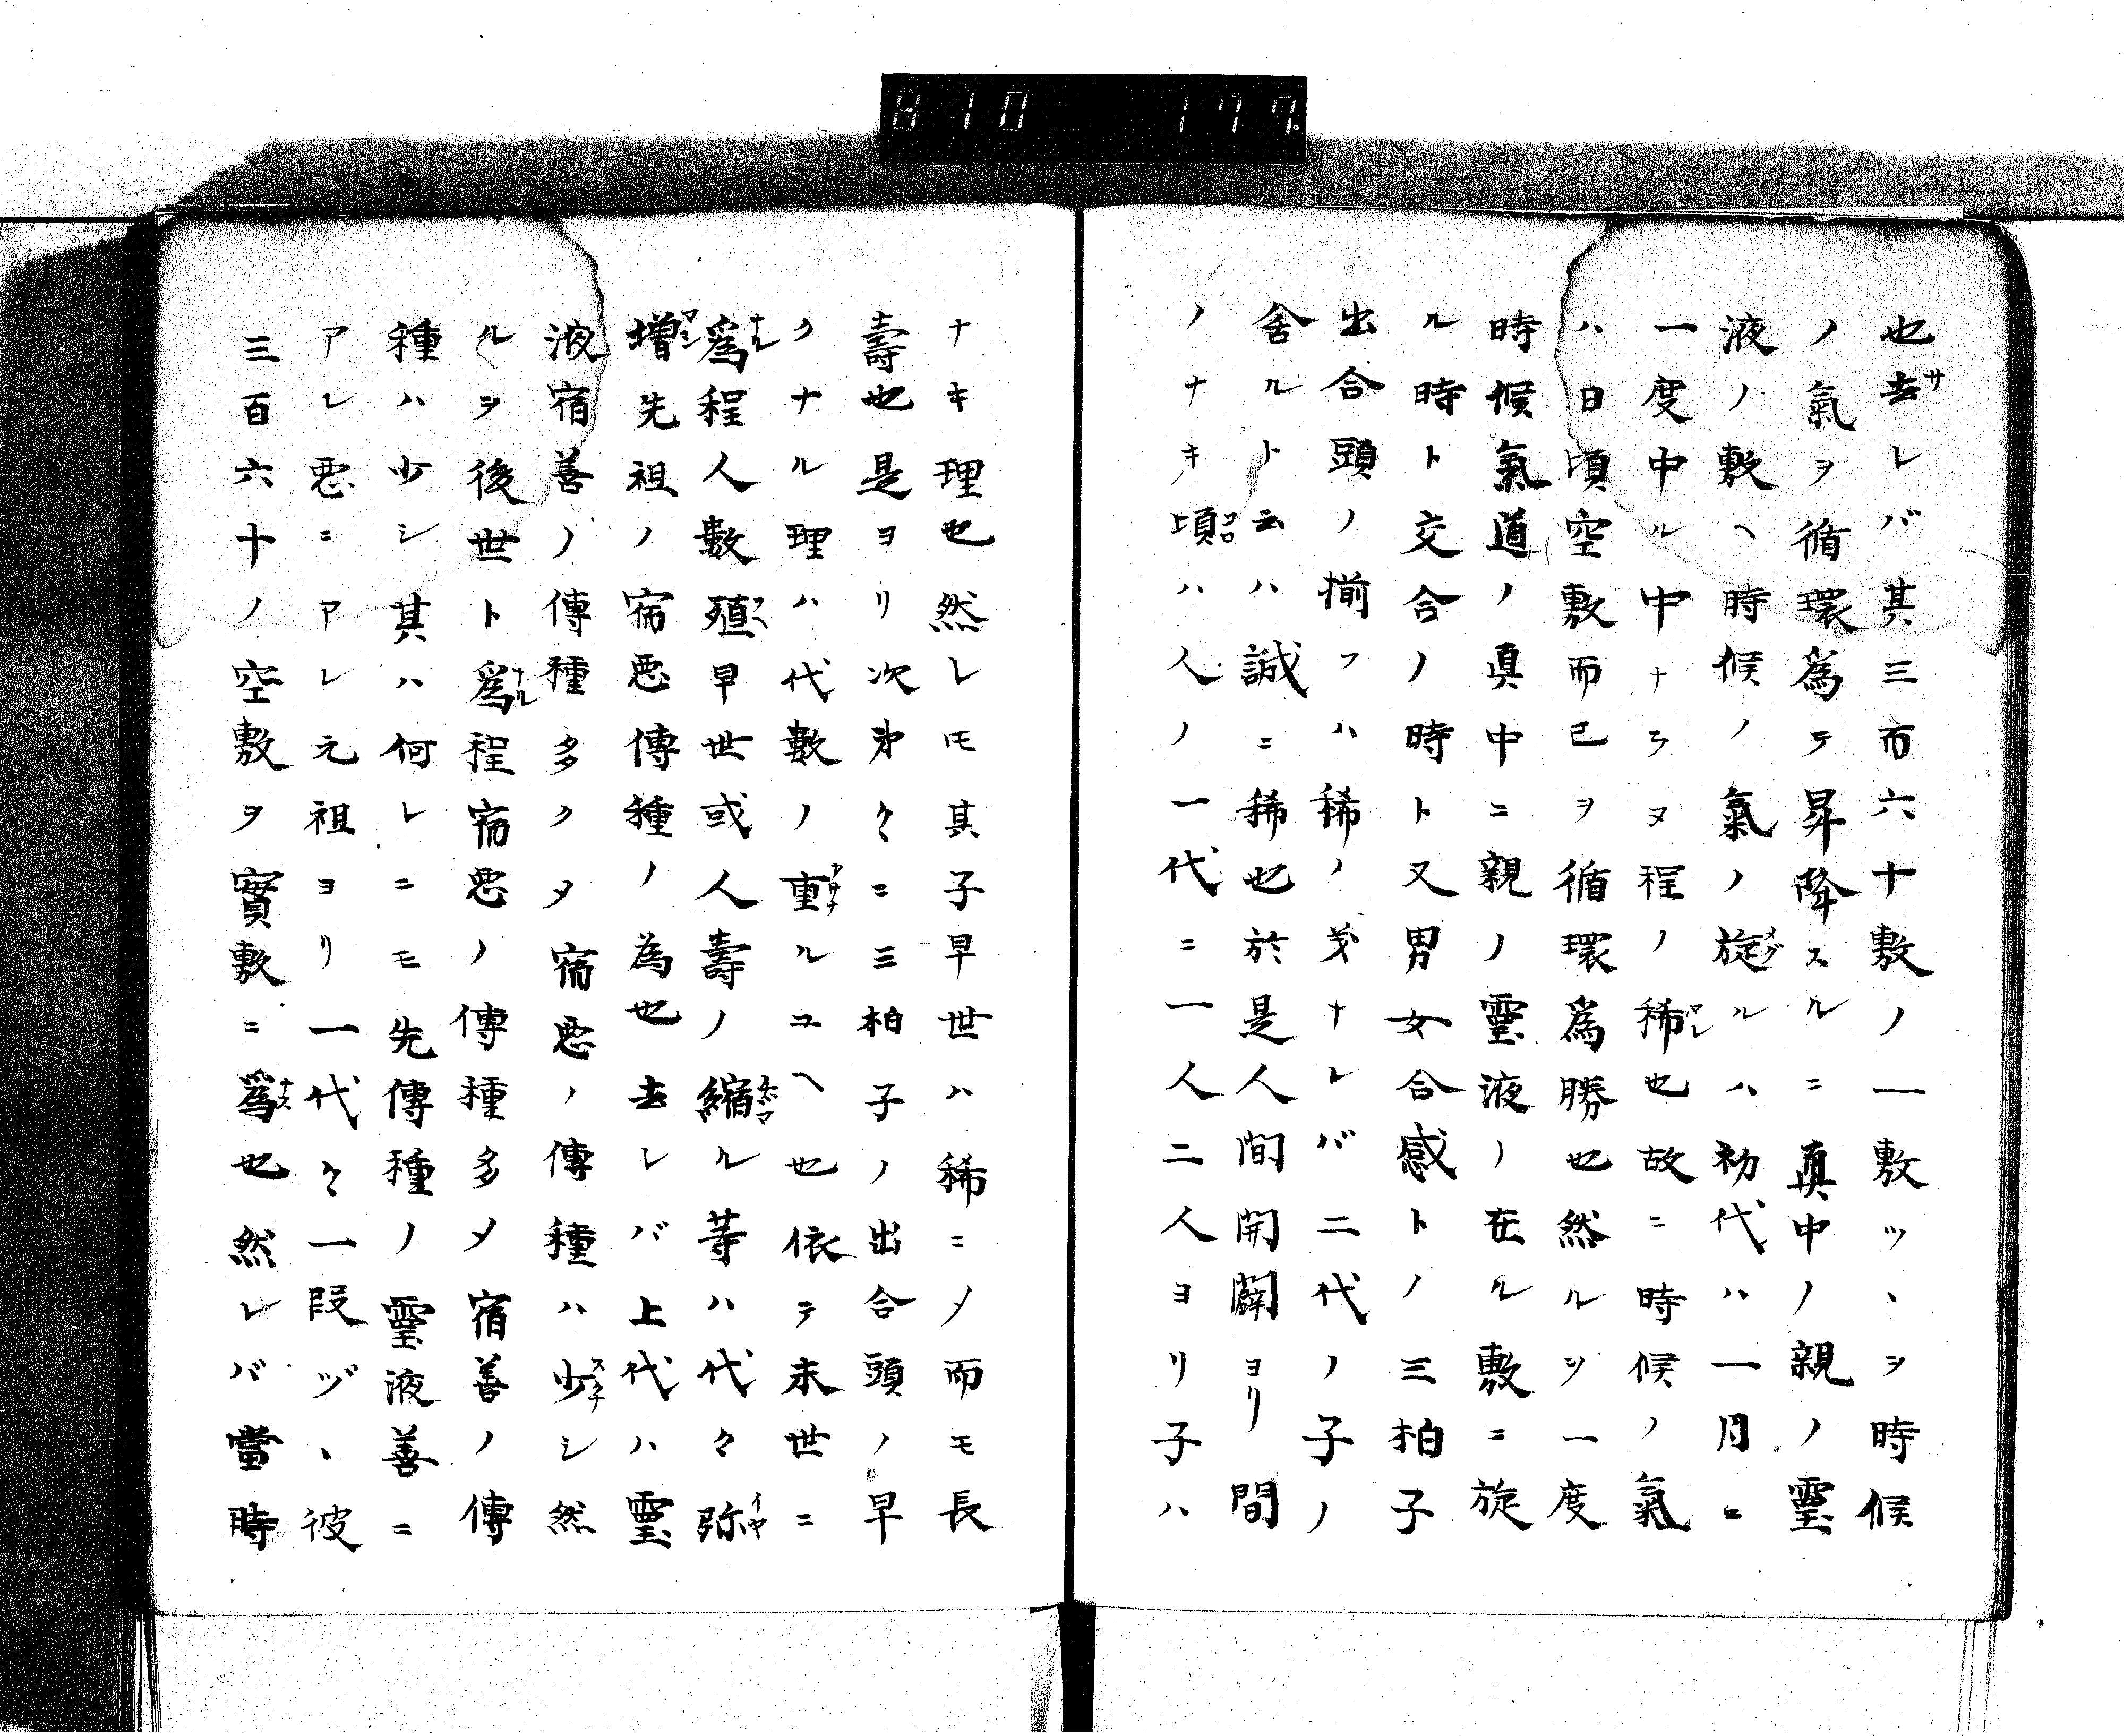 810 177.
也去レバ其三而六十敷ノ一敷ツヽヲ時候
ノ氣ヲ循環為テ昇降スルニ真中ノ親ノ靈
液ノ敷ヘ時候ノ氣ノ旋ルハ初代ハ一月ニ
一度中ル中ナラヌ程ノ稀也故ニ時候ノ氣
ハ日頃空敷而已ヲ循環為勝也然ルヲ一度
時候氣道ノ真中ニ親ノ靈液ノ在ル敷ニ旋
ル時ト交合ノ時ト又男女合感トノ三柏子
出合頭ノ揃フハ稀ノ茇ナレバ二代ノ子ノ
舍ルト云ハ誠ニ稀也於是人間開闢ヨリ間
ノナキ頃ハ人ノ一代ニ一人二人ヨリ子ハ
ナキ理也然レモ其子早世ハ稀ニノ而モ長
壽也是ヨリ次第々ニ三柏子ノ出合頭ノ早
クナル理ハ代數ノ重ルユヘ也依テ末世ニ
為程人數殖早世或人壽ノ縮ル等ハ代々弥
増先祖ノ宿悪傳種ノ為也去レバ上代ハ靈
液宿善ノ傳種多クタ宿悪ノ傳種ハ少シ然
ルヲ後世ト為程宿悪ノ傳種多メ宿善ノ傳
種ハ少シ其ハ何レニモ先傳種ノ靈液善ニ
アレ悪ニアレ元祖ヨリ一代々一段ヅヽ彼
三百六十ノ空敷ヲ實敷ニ為也然レバ當時